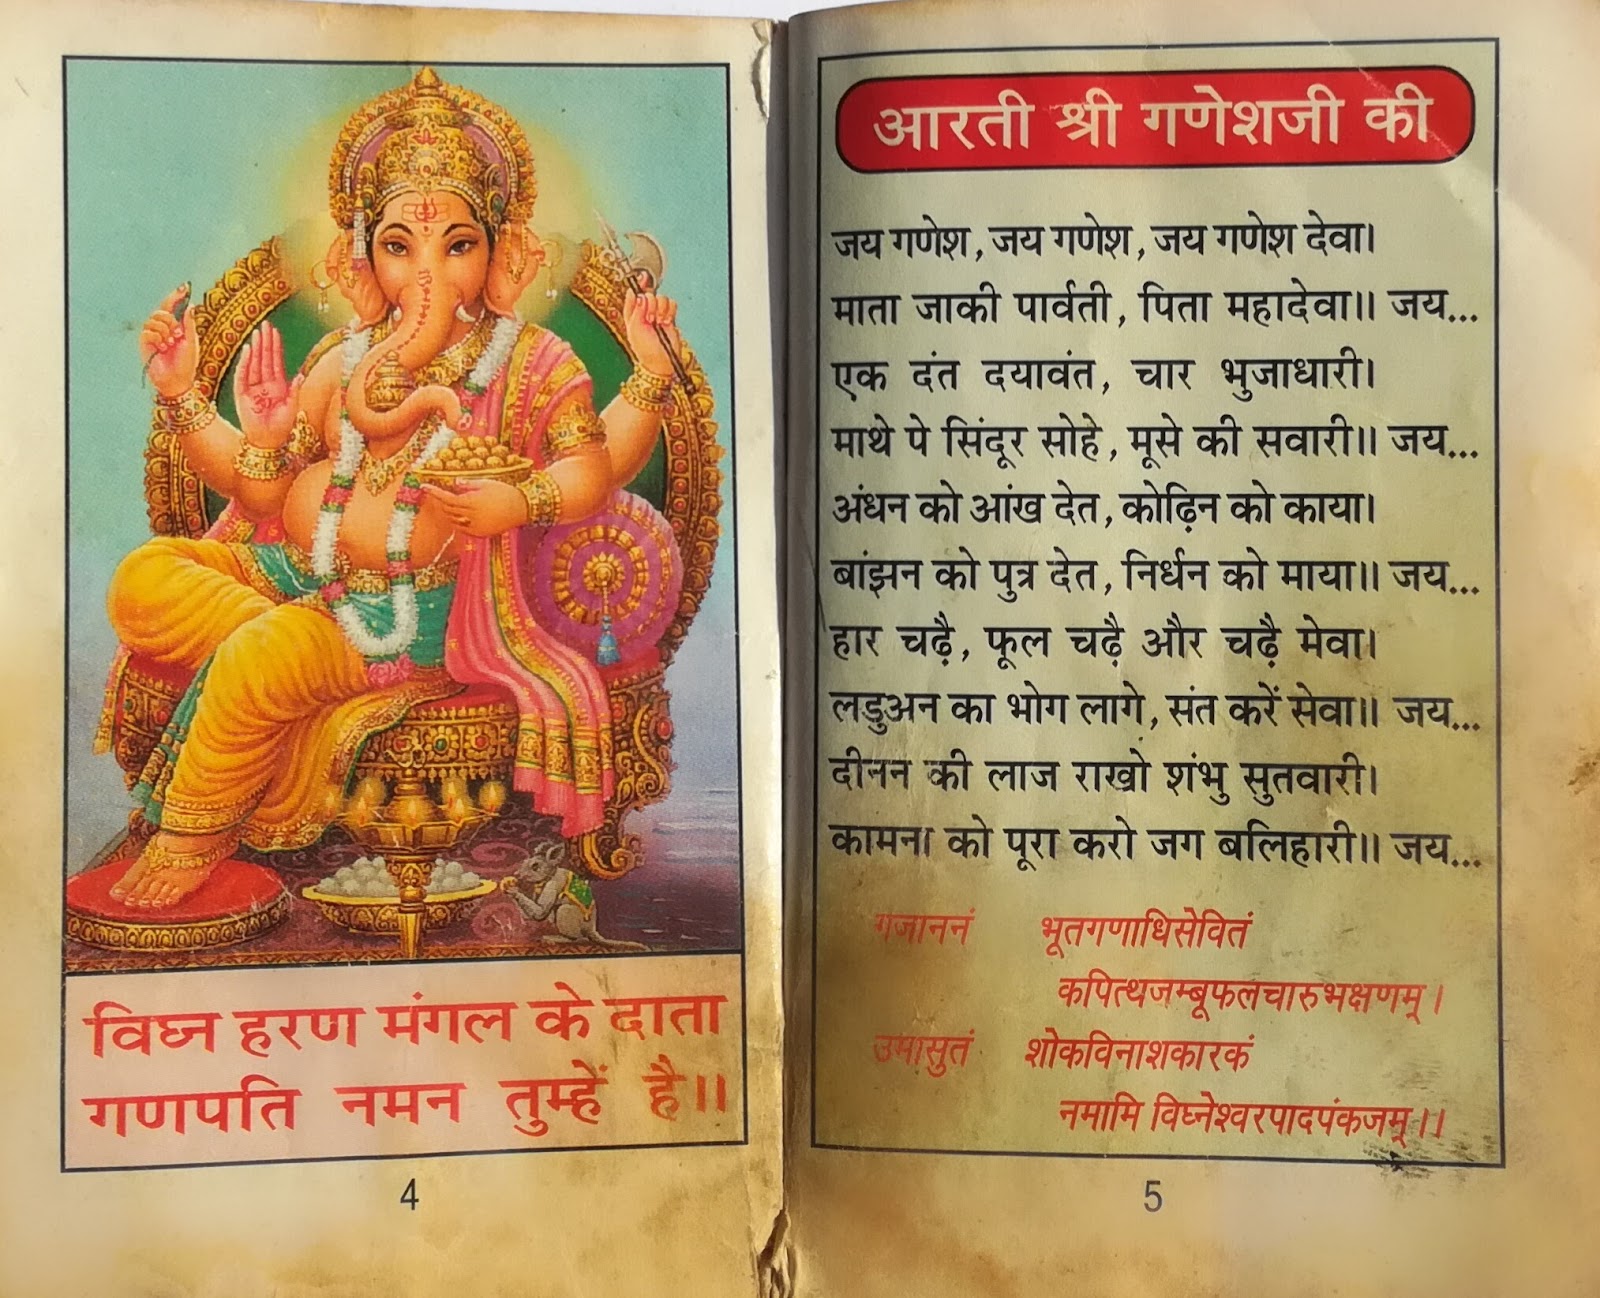 विघ्न हरण मंगल के दाता
गणपति नमन तुम्हें है।।
4
आरती श्री गणेशजी की
जय गणेश, जय गणेश, जय गणेश देवा।
माता जाकी पार्वती, पिता महादेवा।। जय...
एक दंत दयावंत, चार भुजाधारी।
माथे पे सिंदूर सोहे, मूसे की सवारी।। जय...
अंधन को आंख देत, कोढ़िन को काया।
बांझन को पुत्र देत, निर्धन को माया।। जय...
हार चढ़ै, फूल चढ़ै और चढ़ै मेवा।
लडुअन का भोग लागे, संत करें सेवा।। जय...
दीनन की लाज राखो शंभु सुतवारी।
कामना को पूरा करो जग बलिहारी।। जय...
गजाननं भूतगणाधिसेवितं
कपित्थजम्बूफलचारुभक्षणम्।
उमासुतं शोकविनाशकारकं
नमामि विघ्नेश्वरपादपंकजम्।।
5